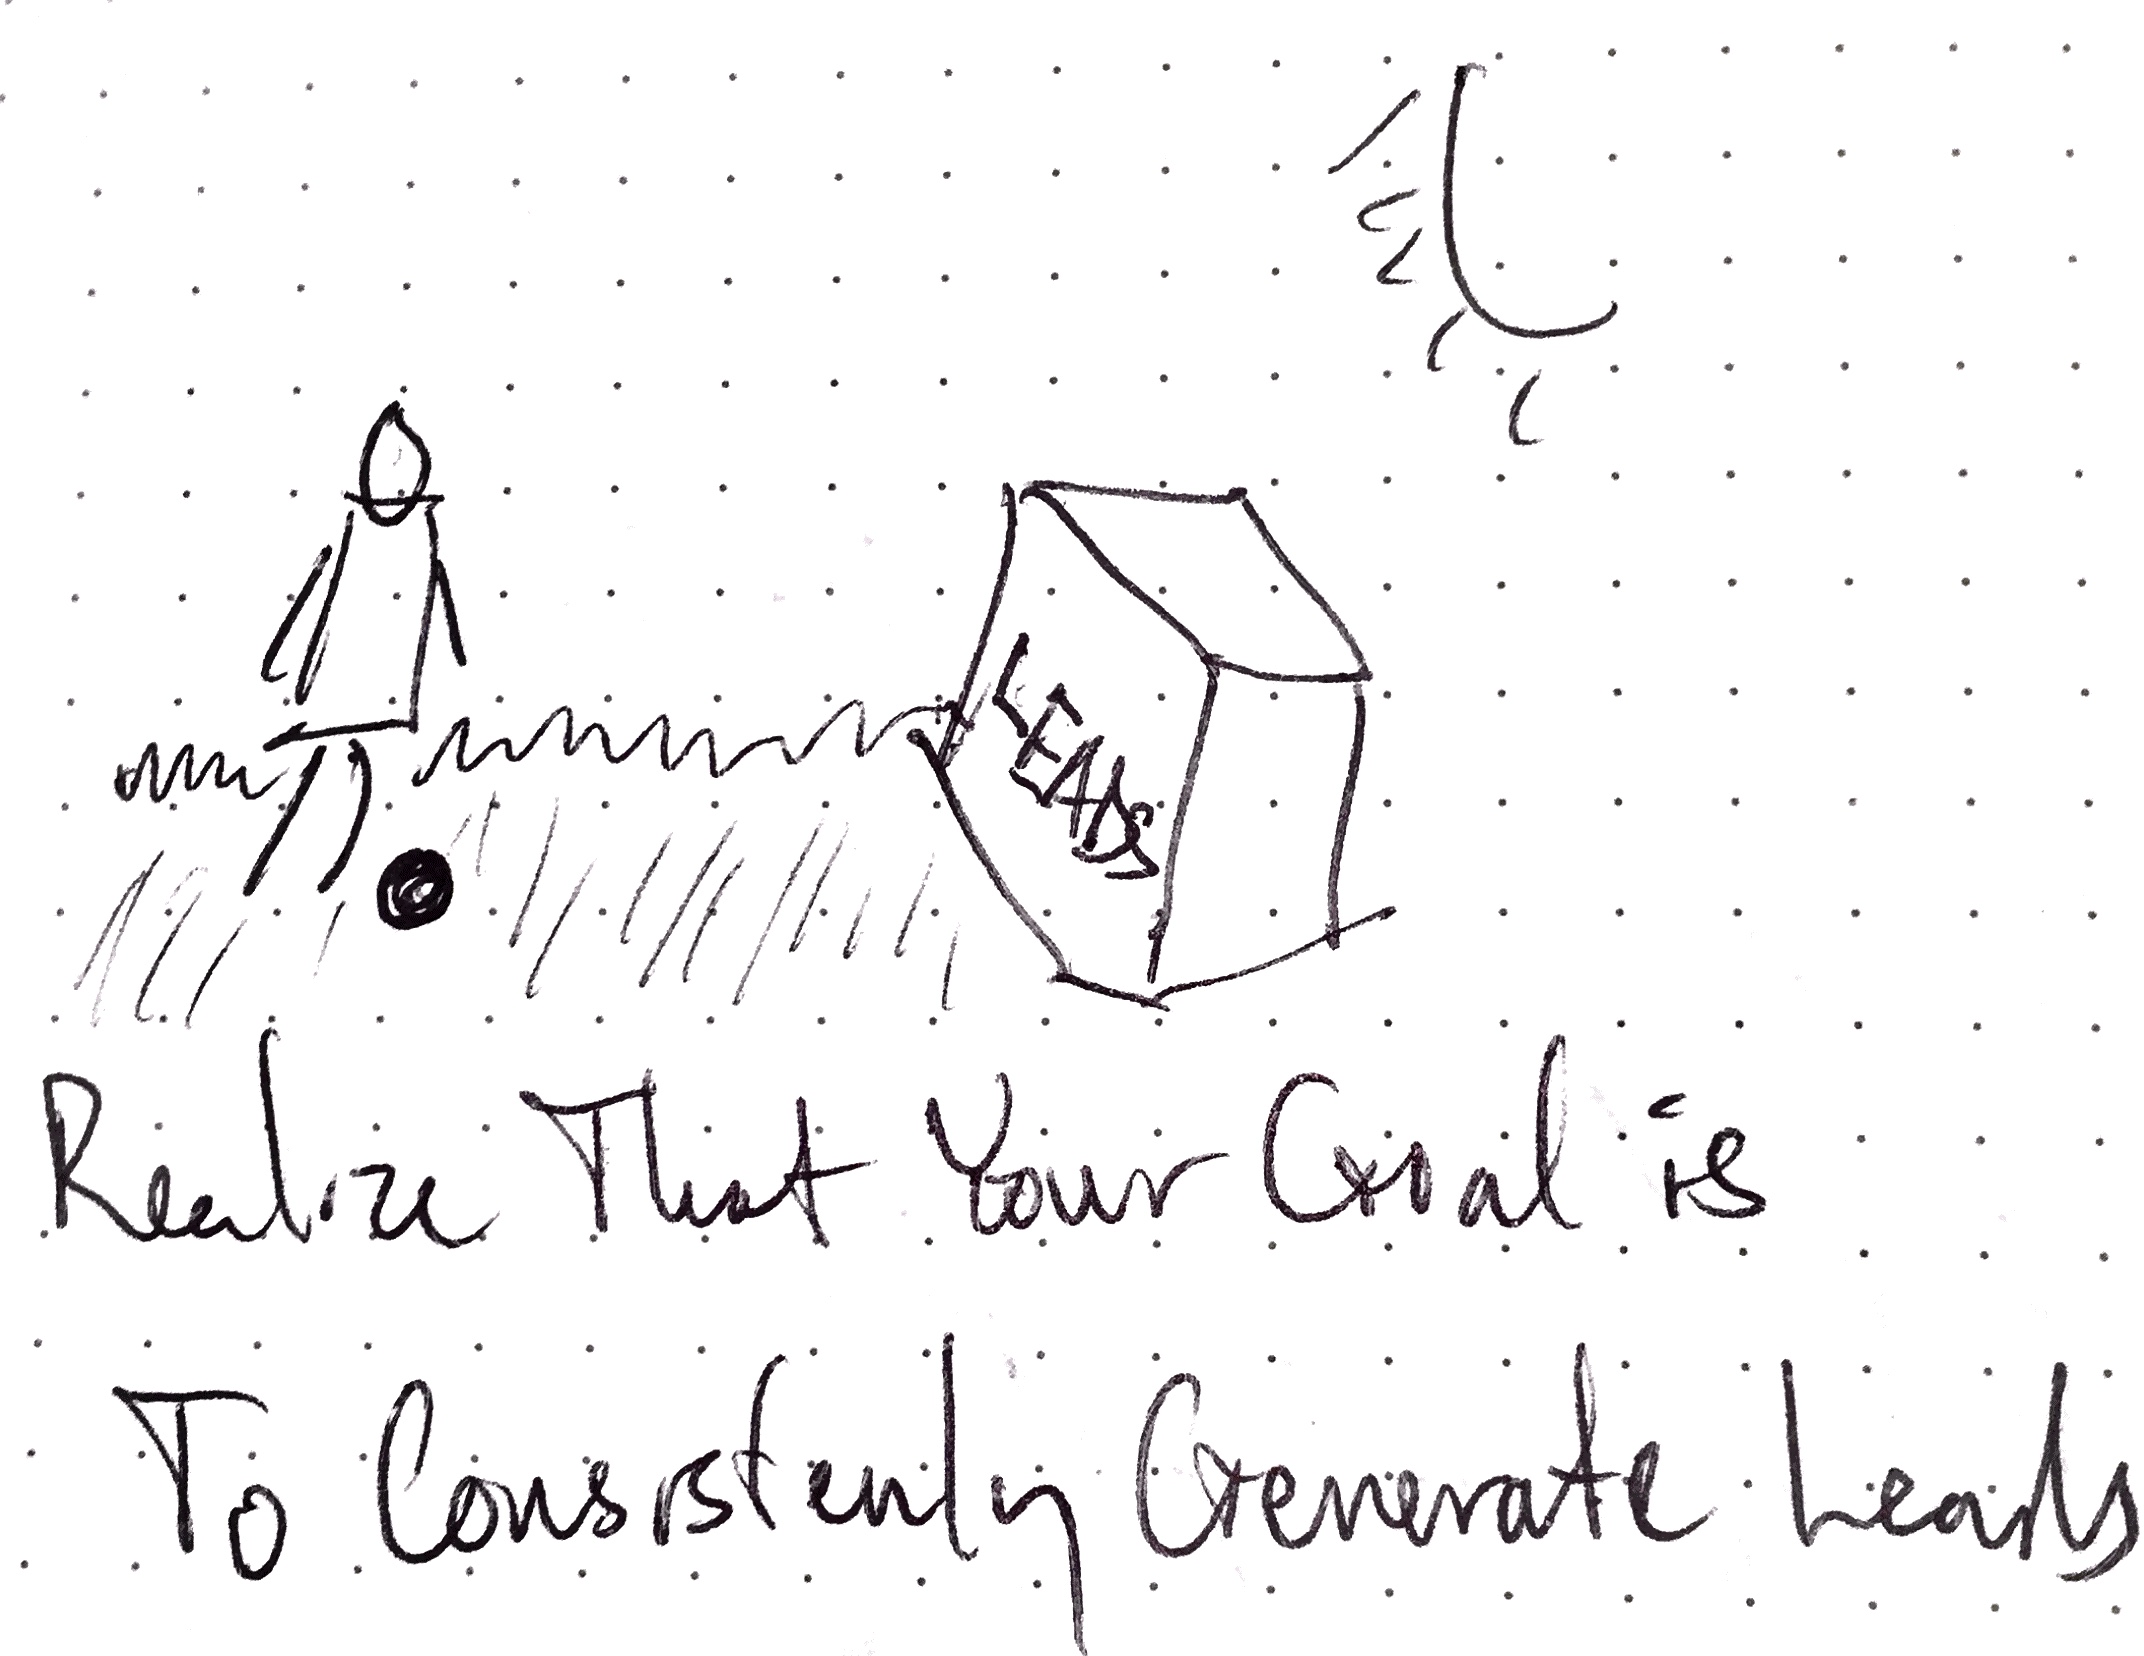 LEADS
Realize That Your Goal is
To Consistenly Generate Leads